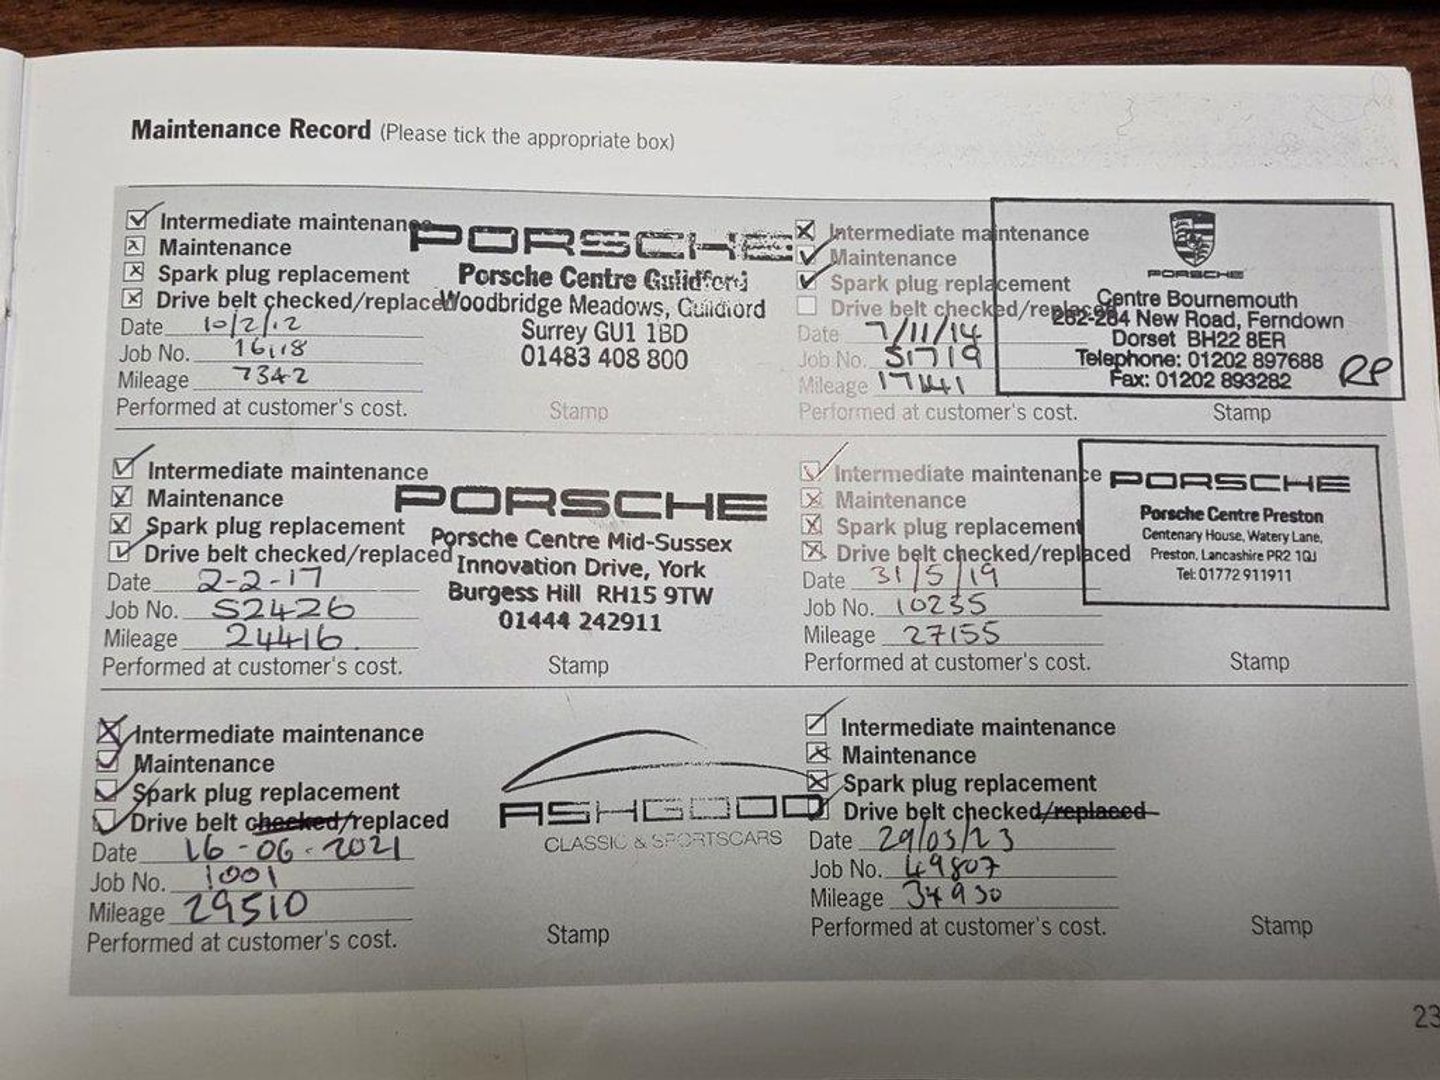 Maintenance Record (Please tick the appropriate box)
Intermediate maintenance
Maintenance
Spark plug replacement
Drive belt checked/replaced
Date 10/2/12
Job No. 16118
Mileage 7342
Performed at customer's cost.
PORSCHE
Porsche Centre Guildford
Woodbridge Meadows, Guildford
Surrey GU1 1BD
01483 408 800
Stamp
Intermediate maintenance
Maintenance
Spark plug replacement
Drive belt checked/replaced
Date 7/11/14
Job No. 51719
Mileage 17141
Performed at customer's cost.
PORSCHE
Centre Bournemouth
262-264 New Road, Ferndown
Dorset BH22 8ER
Telephone: 01202 897688
Fax: 01202 893282
RP
Stamp
Intermediate maintenance
Maintenance
Spark plug replacement
Drive belt checked/replaced
Date 2-2-17
Job No. 52426
Mileage 24416
Performed at customer's cost.
PORSCHE
Porsche Centre Mid-Sussex
Innovation Drive, York
Burgess Hill RH15 9TW
01444 242911
Stamp
Intermediate maintenance
Maintenance
Spark plug replacement
Drive belt checked/replaced
Date 31/5/19
Job No. 10235
Mileage 27155
Performed at customer's cost.
PORSCHE
Porsche Centre Preston
Centenary House, Watery Lane,
Preston, Lancashire PR2 1QJ
Tel: 01772 911911
Stamp
Intermediate maintenance
Maintenance
Spark plug replacement
Drive belt checked/replaced
Date 16-06-2021
Job No. 1001
Mileage 29510
Performed at customer's cost.
ASHGOOD
CLASSIC & SPORTSCARS
Stamp
Intermediate maintenance
Maintenance
Spark plug replacement
Drive belt checked/replaced
Date 29/03/23
Job No. 49807
Mileage 34930
Performed at customer's cost.
Stamp
23